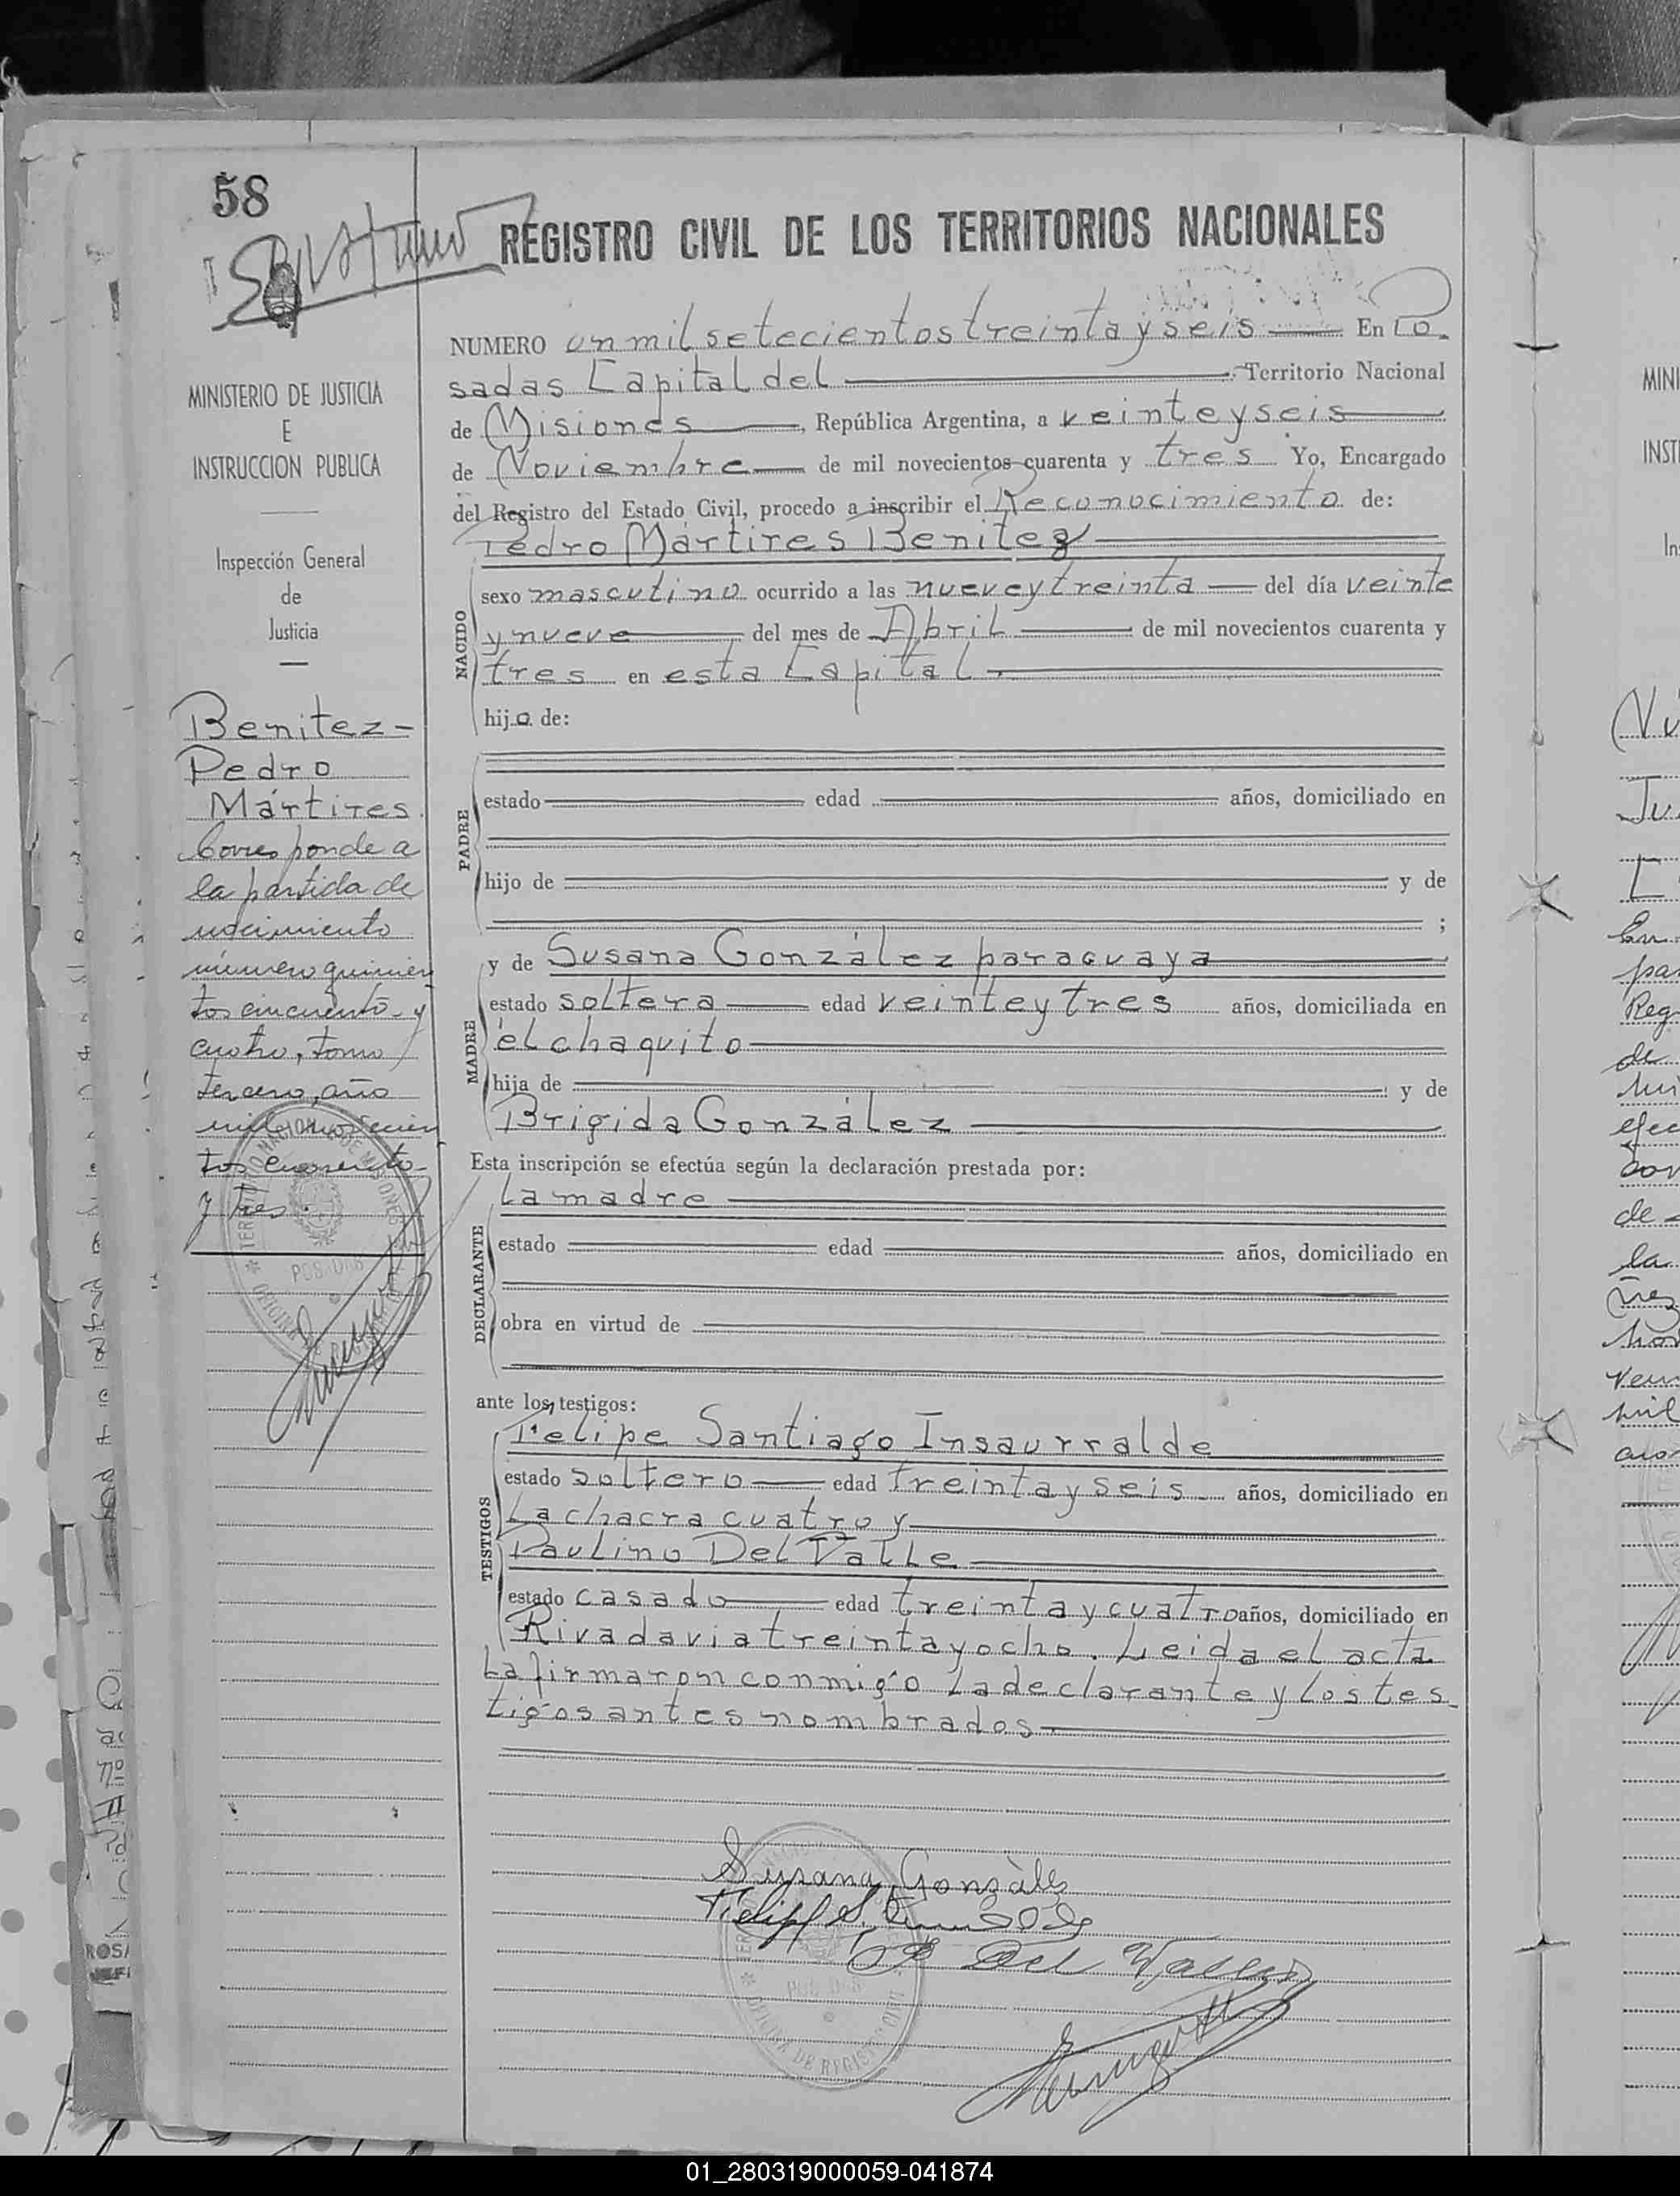 58
REGISTRO CIVIL DE LOS TERRITORIOS NACIONALES
NUMERO un mil setecientos treinta y seis En Po-
sadas Capital del Territorio Nacional
de Misiones, República Argentina, a veinte y seis
de Noviembre de mil novecientos cuarenta y tres Yo, Encargado
del Registro del Estado Civil, procedo a inscribir el Reconocimiento de:
Pedro Mártires Benitez
NACIDO
sexo masculino ocurrido a las nueve y treinta del día veinte
y nueve del mes de Abril de mil novecientos cuarenta y
tres en esta Capital.
hijo de:
PADRE
estado edad años, domiciliado en
hijo de y de
;
MADRE
y de Susana González paraguaya
estado soltera edad veinte y tres años, domiciliada en
el chaquito
hija de y de
Brigida González
Esta inscripción se efectúa según la declaración prestada por:
DECLARANTE
la madre
estado edad años, domiciliado en
obra en virtud de
ante los testigos:
TESTIGOS
Felipe Santiago Insaurralde
estado soltero edad treinta y seis años, domiciliado en
La chacra cuatro y
Paulino Del Valle
estado casado edad treinta y cuatro años, domiciliado en
Rivadavia treinta y ocho. Leida el acta
la firmaron conmigo la declarante y los tes-
tigos antes nombrados.
Susana Gonzàlez
Del Valle
MINISTERIO DE JUSTICIA
E
INSTRUCCION PUBLICA
Inspección General
de
Justicia
Benitez-
Pedro
Mártires
Corresponde a
la partida de
nacimiento
número quinien
tos cincuenta y
cuatro, tomo
tercero, año
mil novecien
tos cuarenta
y tres.
POSADAS
01_280319000059-041874